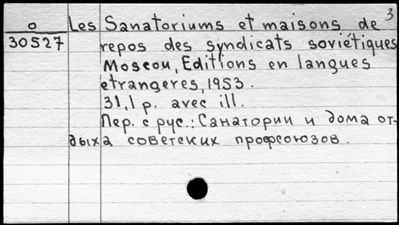 3
o Les Sanatoriums et maisons de
30527 repos des syndicats soviétiques
Moscou, Editions en langues
etrangeres, 1953.
31,1 p. avec ill.
Пер. с рус.: Санатории и дома от-
дыха советских профсоюзов.